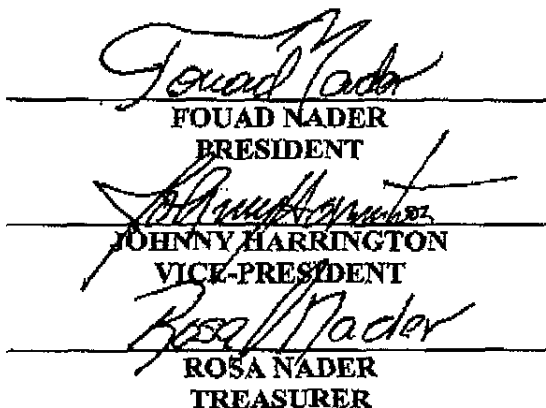 Fouad Nader
FOUAD NADER
PRESIDENT
Johnny Harrington
JOHNNY HARRINGTON
VICE-PRESIDENT
Rosa Nader
ROSA NADER
TREASURER